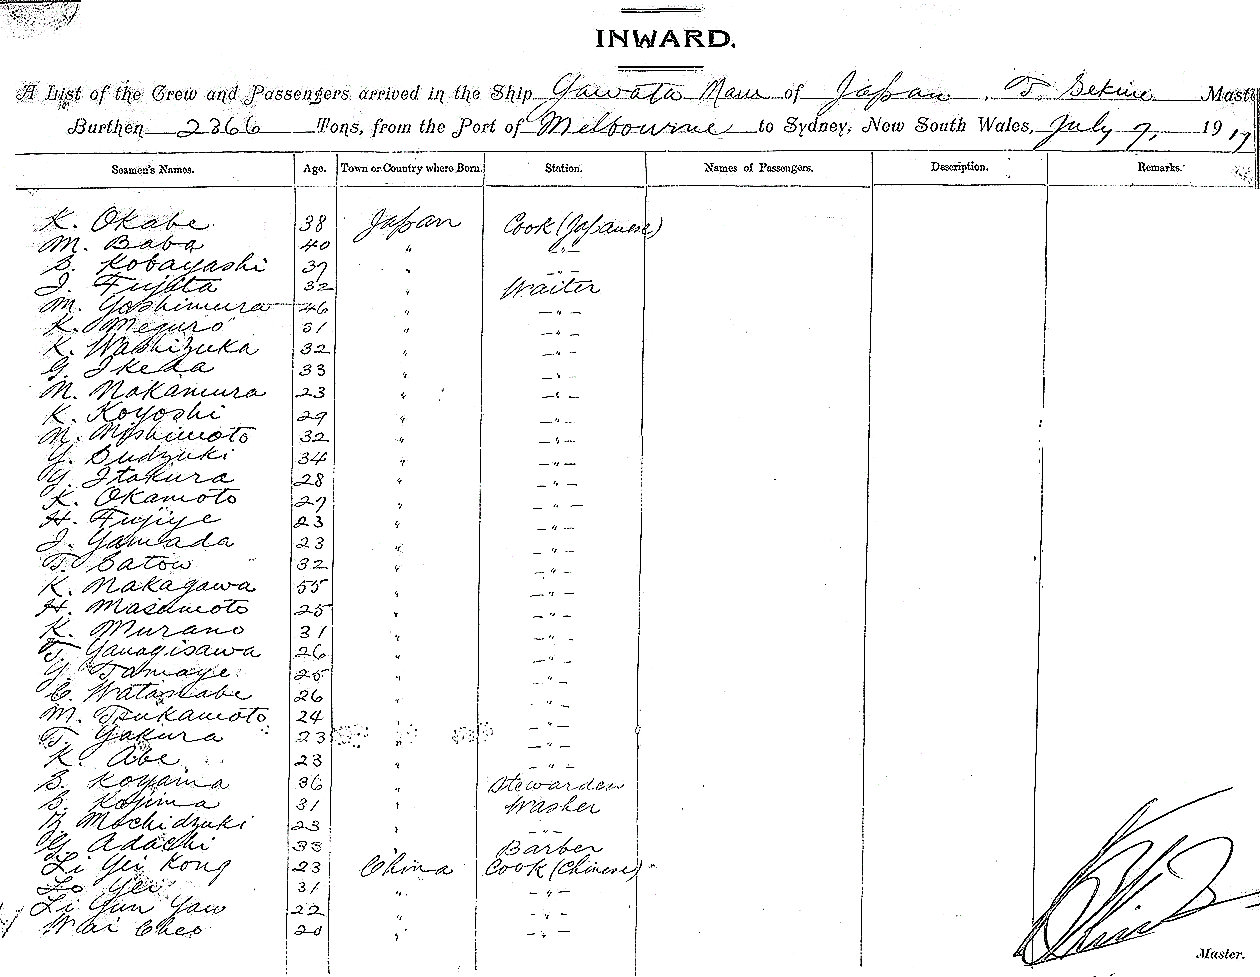 INWARD.
A List of the Crew and Passengers arrived in the Ship Yawata Maru of Japan, T. Sekine Master
Burthen 2366 Tons, from the Port of Melbourne to Sydney, New South Wales, July 7, 1917
Seamen's Names. Age. Town or Country where Born. Station. Names of Passengers. Description. Remarks.
K. Okabe 38 Japan Cook (Japanese)
M. Baba 40 " -"-
S. Kobayashi 37 " -"-
J. Fujita 32 " Waiter
M. Yoshimura 46 " -"-
K. Meguro 31 " -"-
K. Washizuka 32 " -"-
G. Ikeda 33 " -"-
M. Nakamura 23 " -"-
K. Koyoshi 29 " -"-
N. Nishimoto 32 " -"-
Y. Sudzuki 34 " -"-
Y. Itakura 28 " -"-
K. Okamoto 27 " -"-
H. Fujiye 23 " -"-
J. Yamada 23 " -"-
T. Satow 32 " -"-
K. Nakagawa 55 " -"-
H. Masamoto 25 " -"-
K. Murano 31 " -"-
T. Yanagisawa 26 " -"-
Y. Tamaye 25 " -"-
C. Watanabe 26 " -"-
M. Tsukamoto 24 " -"-
T. Yakura 23 " -"-
K. Abe 23 " -"-
S. Koyama 36 " Stewardess
S. Kojima 31 " Washer
Mochidzuki 23 " -"-
Y. Adachi 33 " Barber
Li Yei Kong 23 China Cook (Chinese)
Lo Yei 31 " -"-
Li Yun Yaw 22 " -"-
Wai Cheo 20 " -"-
Master.